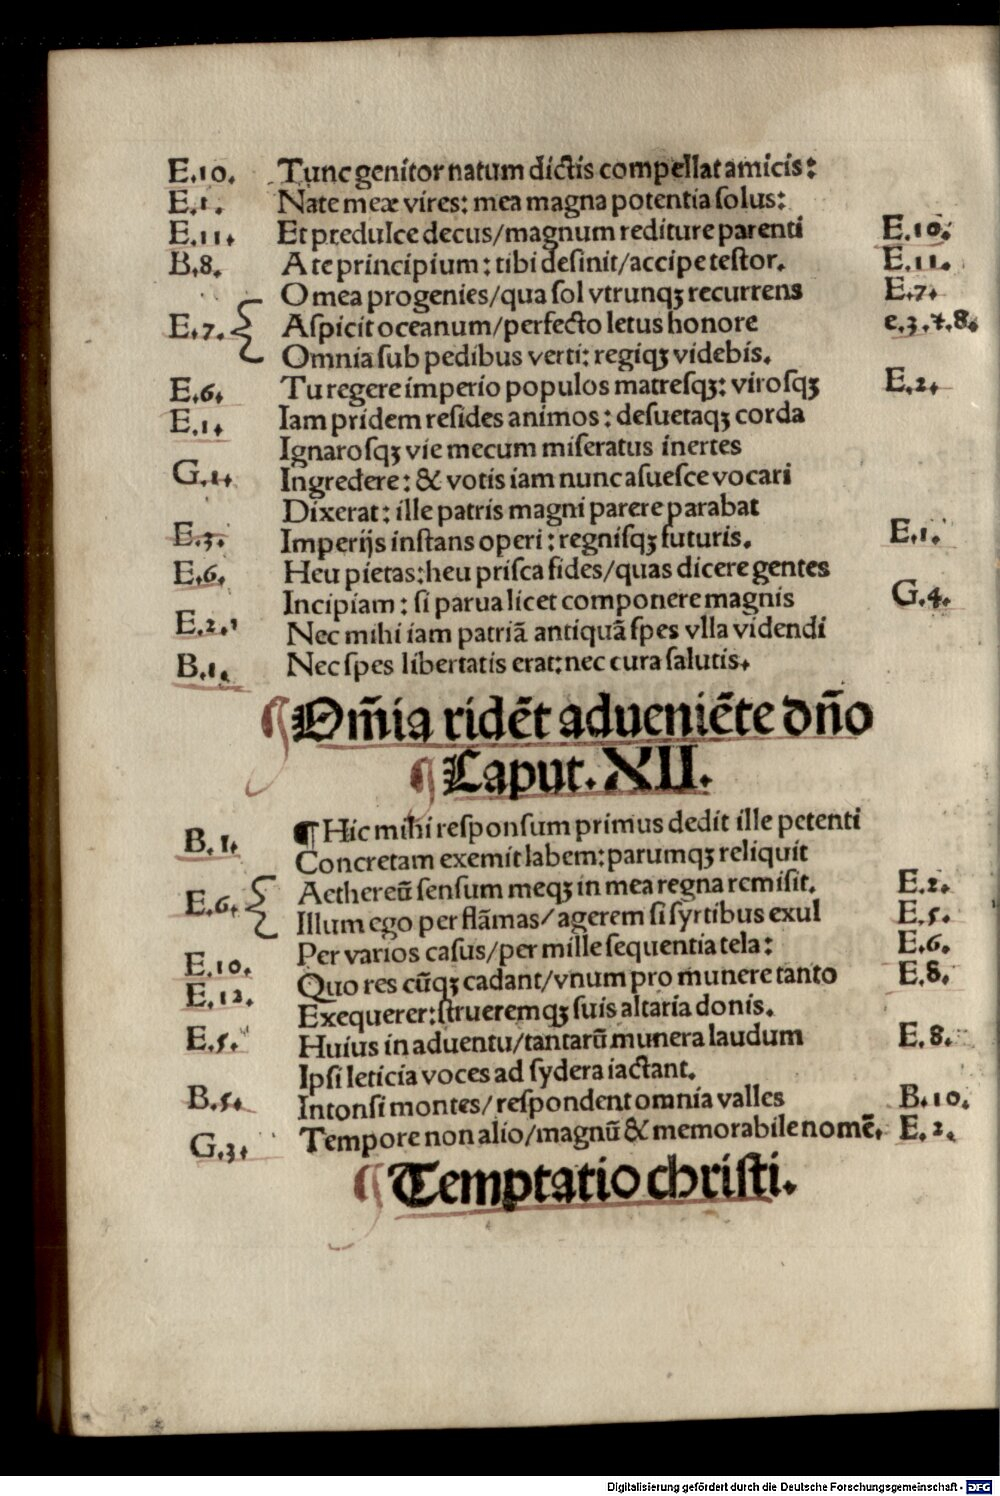 E.10. Tunc genitor natum dictis compellat amicis:
E.1. Nate meæ vires: mea magna potentia solus:
E.11. Et predulce decus/magnum rediture parenti E.10.
B.8. A te principium: tibi desinit/accipe testor. E.11.
O mea progenies/qua sol vtrunqꝫ recurrens E.7.
E.7. Aspicit oceanum/perfecto letus honore e.3.7.8.
Omnia sub pedibus verti: regiqꝫ videbis.
E.6. Tu regere imperio populos matresqꝫ: virosqꝫ E.2.
E.1. Iam pridem resides animos: desuetaqꝫ corda
Ignarosqꝫ vie mecum miseratus inertes
G.1. Ingredere: & votis iam nunc asuesce vocari
Dixerat: ille patris magni parere parabat
E.3. Imperijs instans operi: regnisqꝫ futuris. E.1.
E.6. Heu pietas: heu prisca fides/quas dicere gentes
Incipiam: si parua licet componere magnis G.4.
E.2. Nec mihi iam patriā antiquā spes vlla videndi
B.1. Nec spes libertatis erat: nec cura salutis.
¶Om̄ia ridēt adueniēte dn̄o
¶Caput. XII.
B.1. ¶Hic mihi responsum primus dedit ille petenti
Concretam exemit labem: parumqꝫ reliquit
E.6. Aethereū sensum meqꝫ in mea regna remisit. E.2.
Illum ego per flāmas/agerem si syrtibus exul E.5.
Per varios casus/per mille sequentia tela: E.6.
E.10. Quo res cūqꝫ cadant/vnum pro munere tanto E.8.
E.12. Exequerer: strueremqꝫ suis altaria donis.
E.5. Huius in aduentu/tantarū munera laudum E.8.
Ipsi leticia voces ad sydera iactant.
B.5. Intonsi montes/respondent omnia valles B.10.
G.3. Tempore non alio/magnū & memorabile nomē. E.2.
¶Temptatio christi.
Digitalisierung gefördert durch die Deutsche Forschungsgemeinschaft - DFG